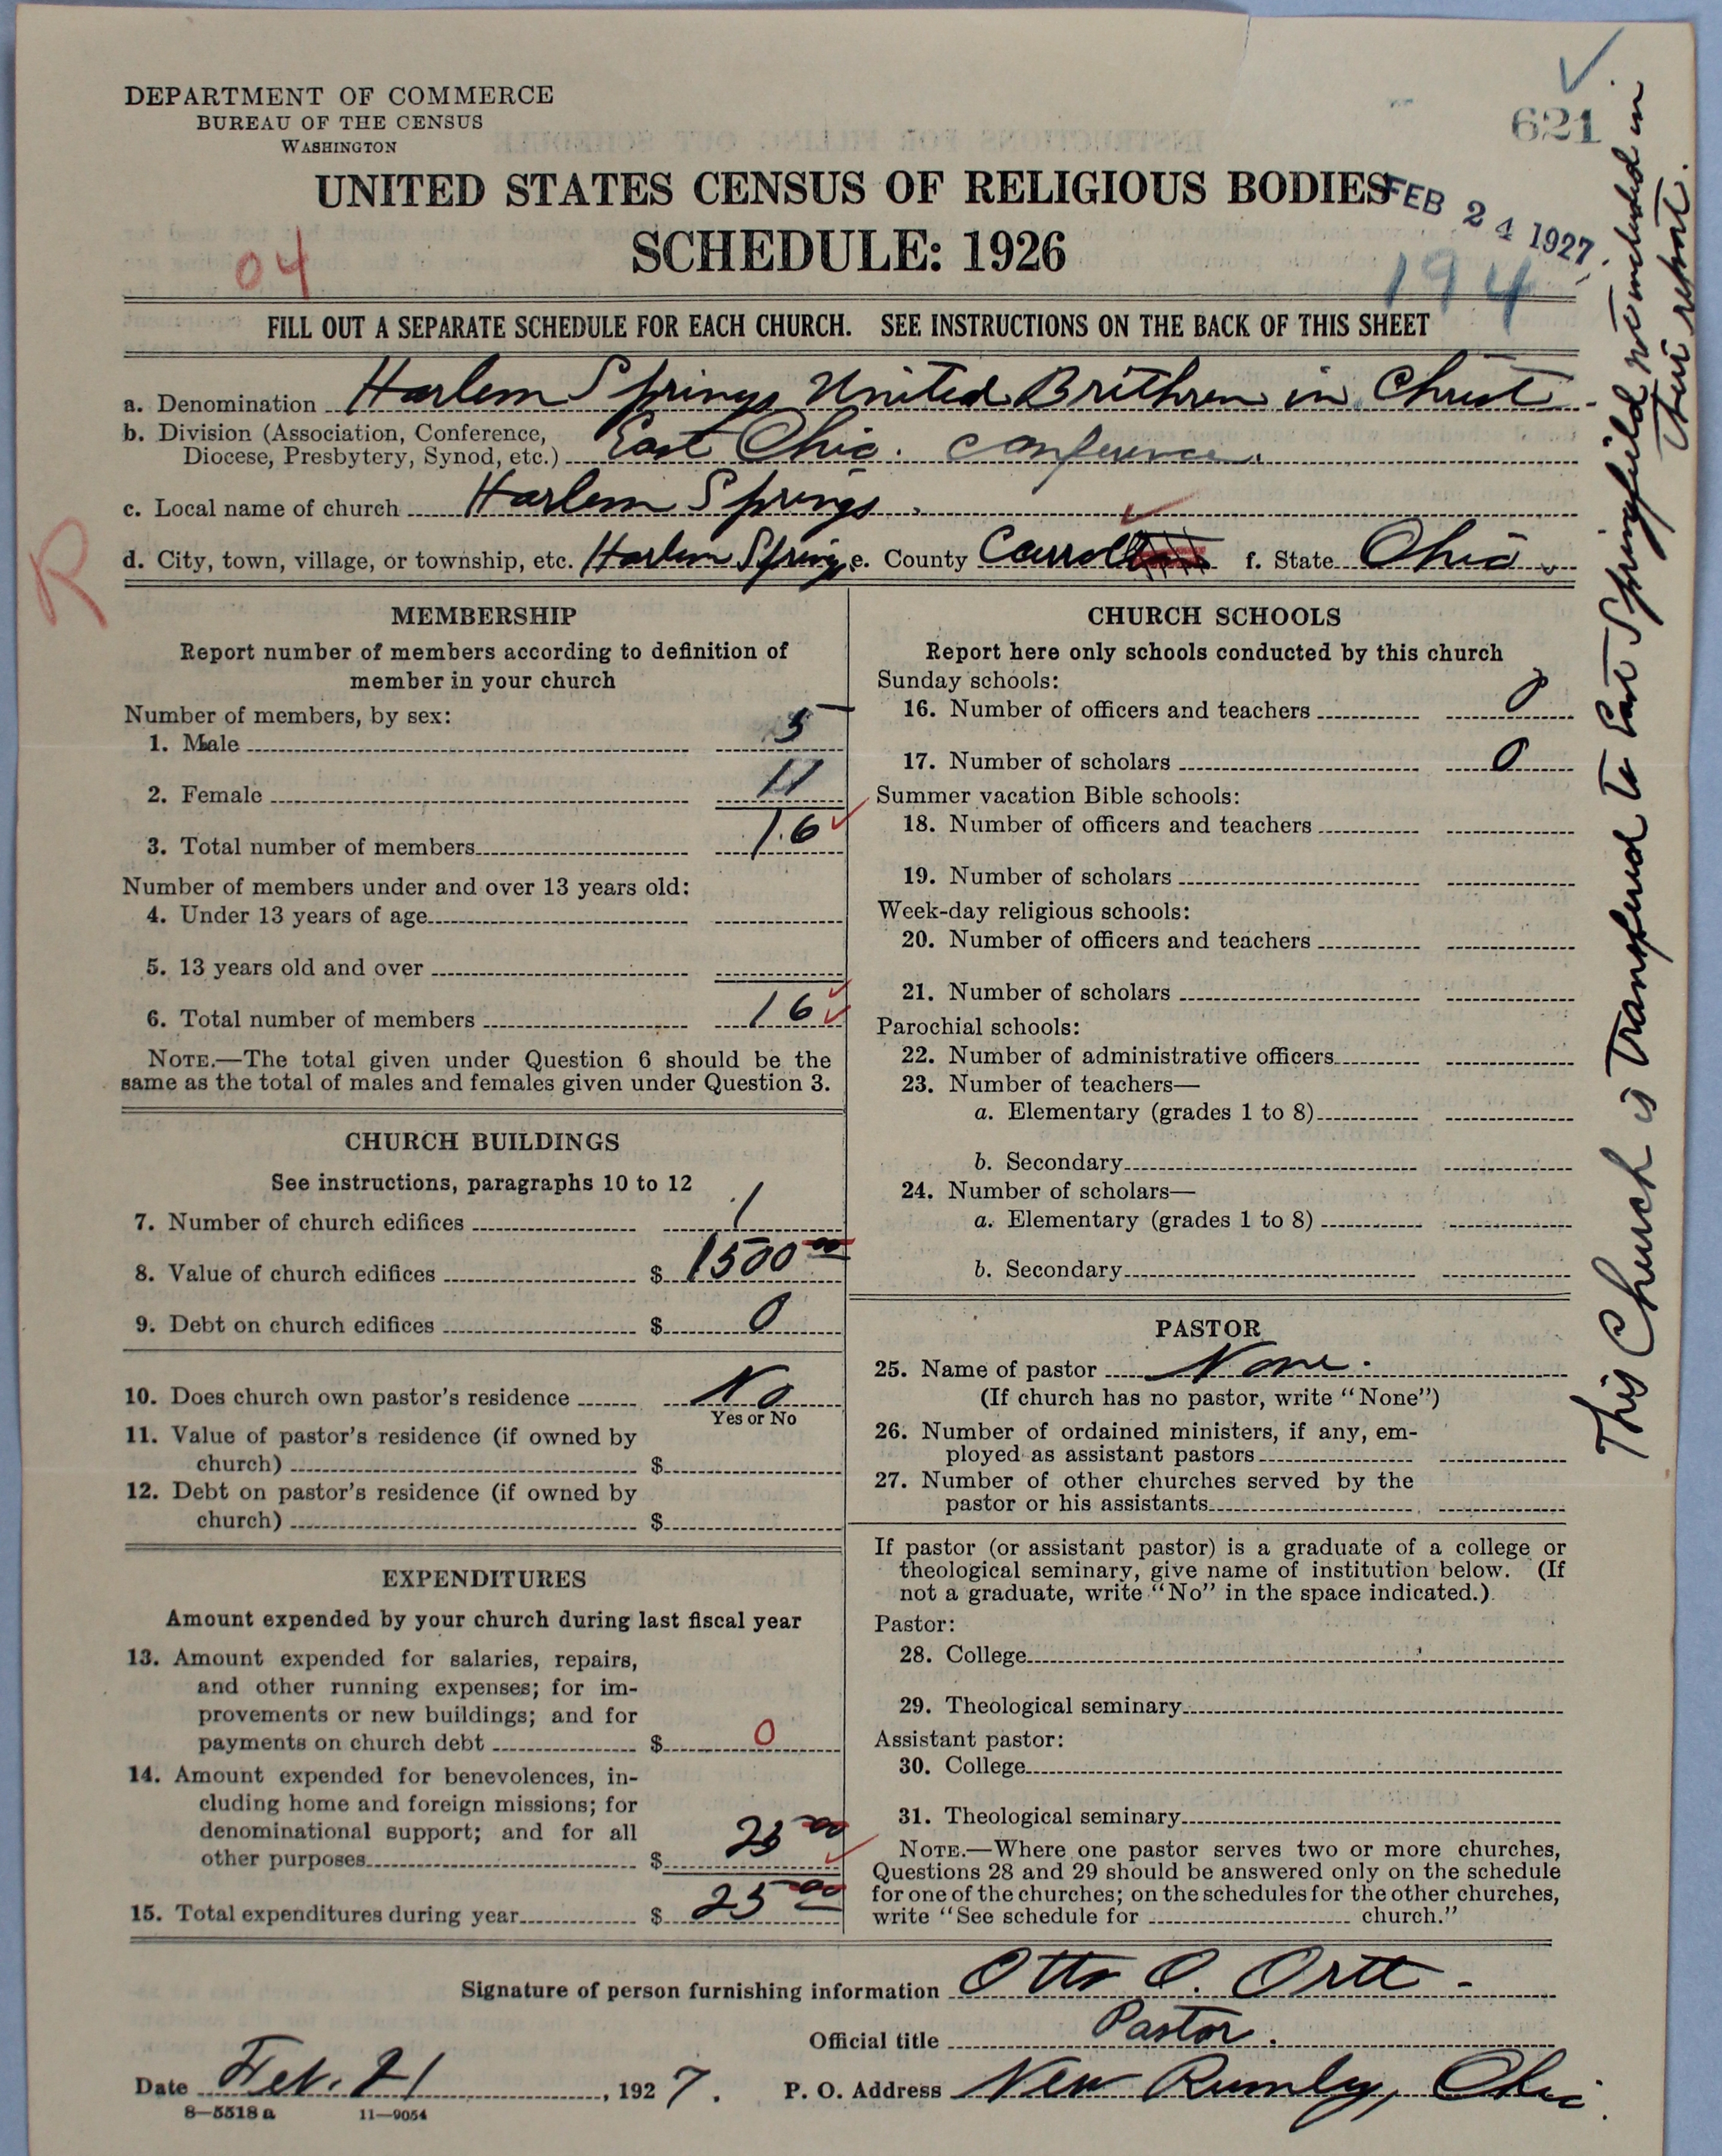 DEPARTMENT OF COMMERCE
BUREAU OF THE CENSUS
WASHINGTON
621
UNITED STATES CENSUS OF RELIGIOUS BODIES
FEB 24 1927
SCHEDULE: 1926
04
194
FILL OUT A SEPARATE SCHEDULE FOR EACH CHURCH. SEE INSTRUCTIONS ON THE BACK OF THIS SHEET
a. Denomination Harlem Springs United Brithren in Christ
b. Division (Association, Conference,
Diocese, Presbytery, Synod, etc.) East Ohio. Conference.
c. Local name of church Harlem Springs
R
d. City, town, village, or township, etc. Harlem Springs e. County Carroll f. State Ohio
MEMBERSHIP
Report number of members according to definition of
member in your church
Number of members, by sex:
1. Male 5
2. Female 11
3. Total number of members 16
Number of members under and over 13 years old:
4. Under 13 years of age
5. 13 years old and over
6. Total number of members 16
NOTE.—The total given under Question 6 should be the
same as the total of males and females given under Question 3.
CHURCH BUILDINGS
See instructions, paragraphs 10 to 12
7. Number of church edifices 1
8. Value of church edifices $ 1500 00
9. Debt on church edifices $ 0
10. Does church own pastor's residence No
Yes or No
11. Value of pastor's residence (if owned by
church) $
12. Debt on pastor's residence (if owned by
church) $
EXPENDITURES
Amount expended by your church during last fiscal year
13. Amount expended for salaries, repairs,
and other running expenses; for im-
provements or new buildings; and for
payments on church debt $ 0
14. Amount expended for benevolences, in-
cluding home and foreign missions; for
denominational support; and for all
other purposes $ 25 00
15. Total expenditures during year $ 25 00
CHURCH SCHOOLS
Report here only schools conducted by this church
Sunday schools:
16. Number of officers and teachers 0
17. Number of scholars 0
Summer vacation Bible schools:
18. Number of officers and teachers
19. Number of scholars
Week-day religious schools:
20. Number of officers and teachers
21. Number of scholars
Parochial schools:
22. Number of administrative officers
23. Number of teachers—
a. Elementary (grades 1 to 8)
b. Secondary
24. Number of scholars—
a. Elementary (grades 1 to 8)
b. Secondary
PASTOR
25. Name of pastor None.
(If church has no pastor, write "None")
26. Number of ordained ministers, if any, em-
ployed as assistant pastors
27. Number of other churches served by the
pastor or his assistants
If pastor (or assistant pastor) is a graduate of a college or
theological seminary, give name of institution below. (If
not a graduate, write "No" in the space indicated.)
Pastor:
28. College
29. Theological seminary
Assistant pastor:
30. College
31. Theological seminary
NOTE.—Where one pastor serves two or more churches,
Questions 28 and 29 should be answered only on the schedule
for one of the churches; on the schedules for the other churches,
write "See schedule for church."
Signature of person furnishing information Otto O. Ortt
Official title Pastor.
Date Feb. 21, 1927. P. O. Address New Rumley, Ohio.
8—5518a 11—9054
This Church is Transfered to East Springfield not included in
their report.